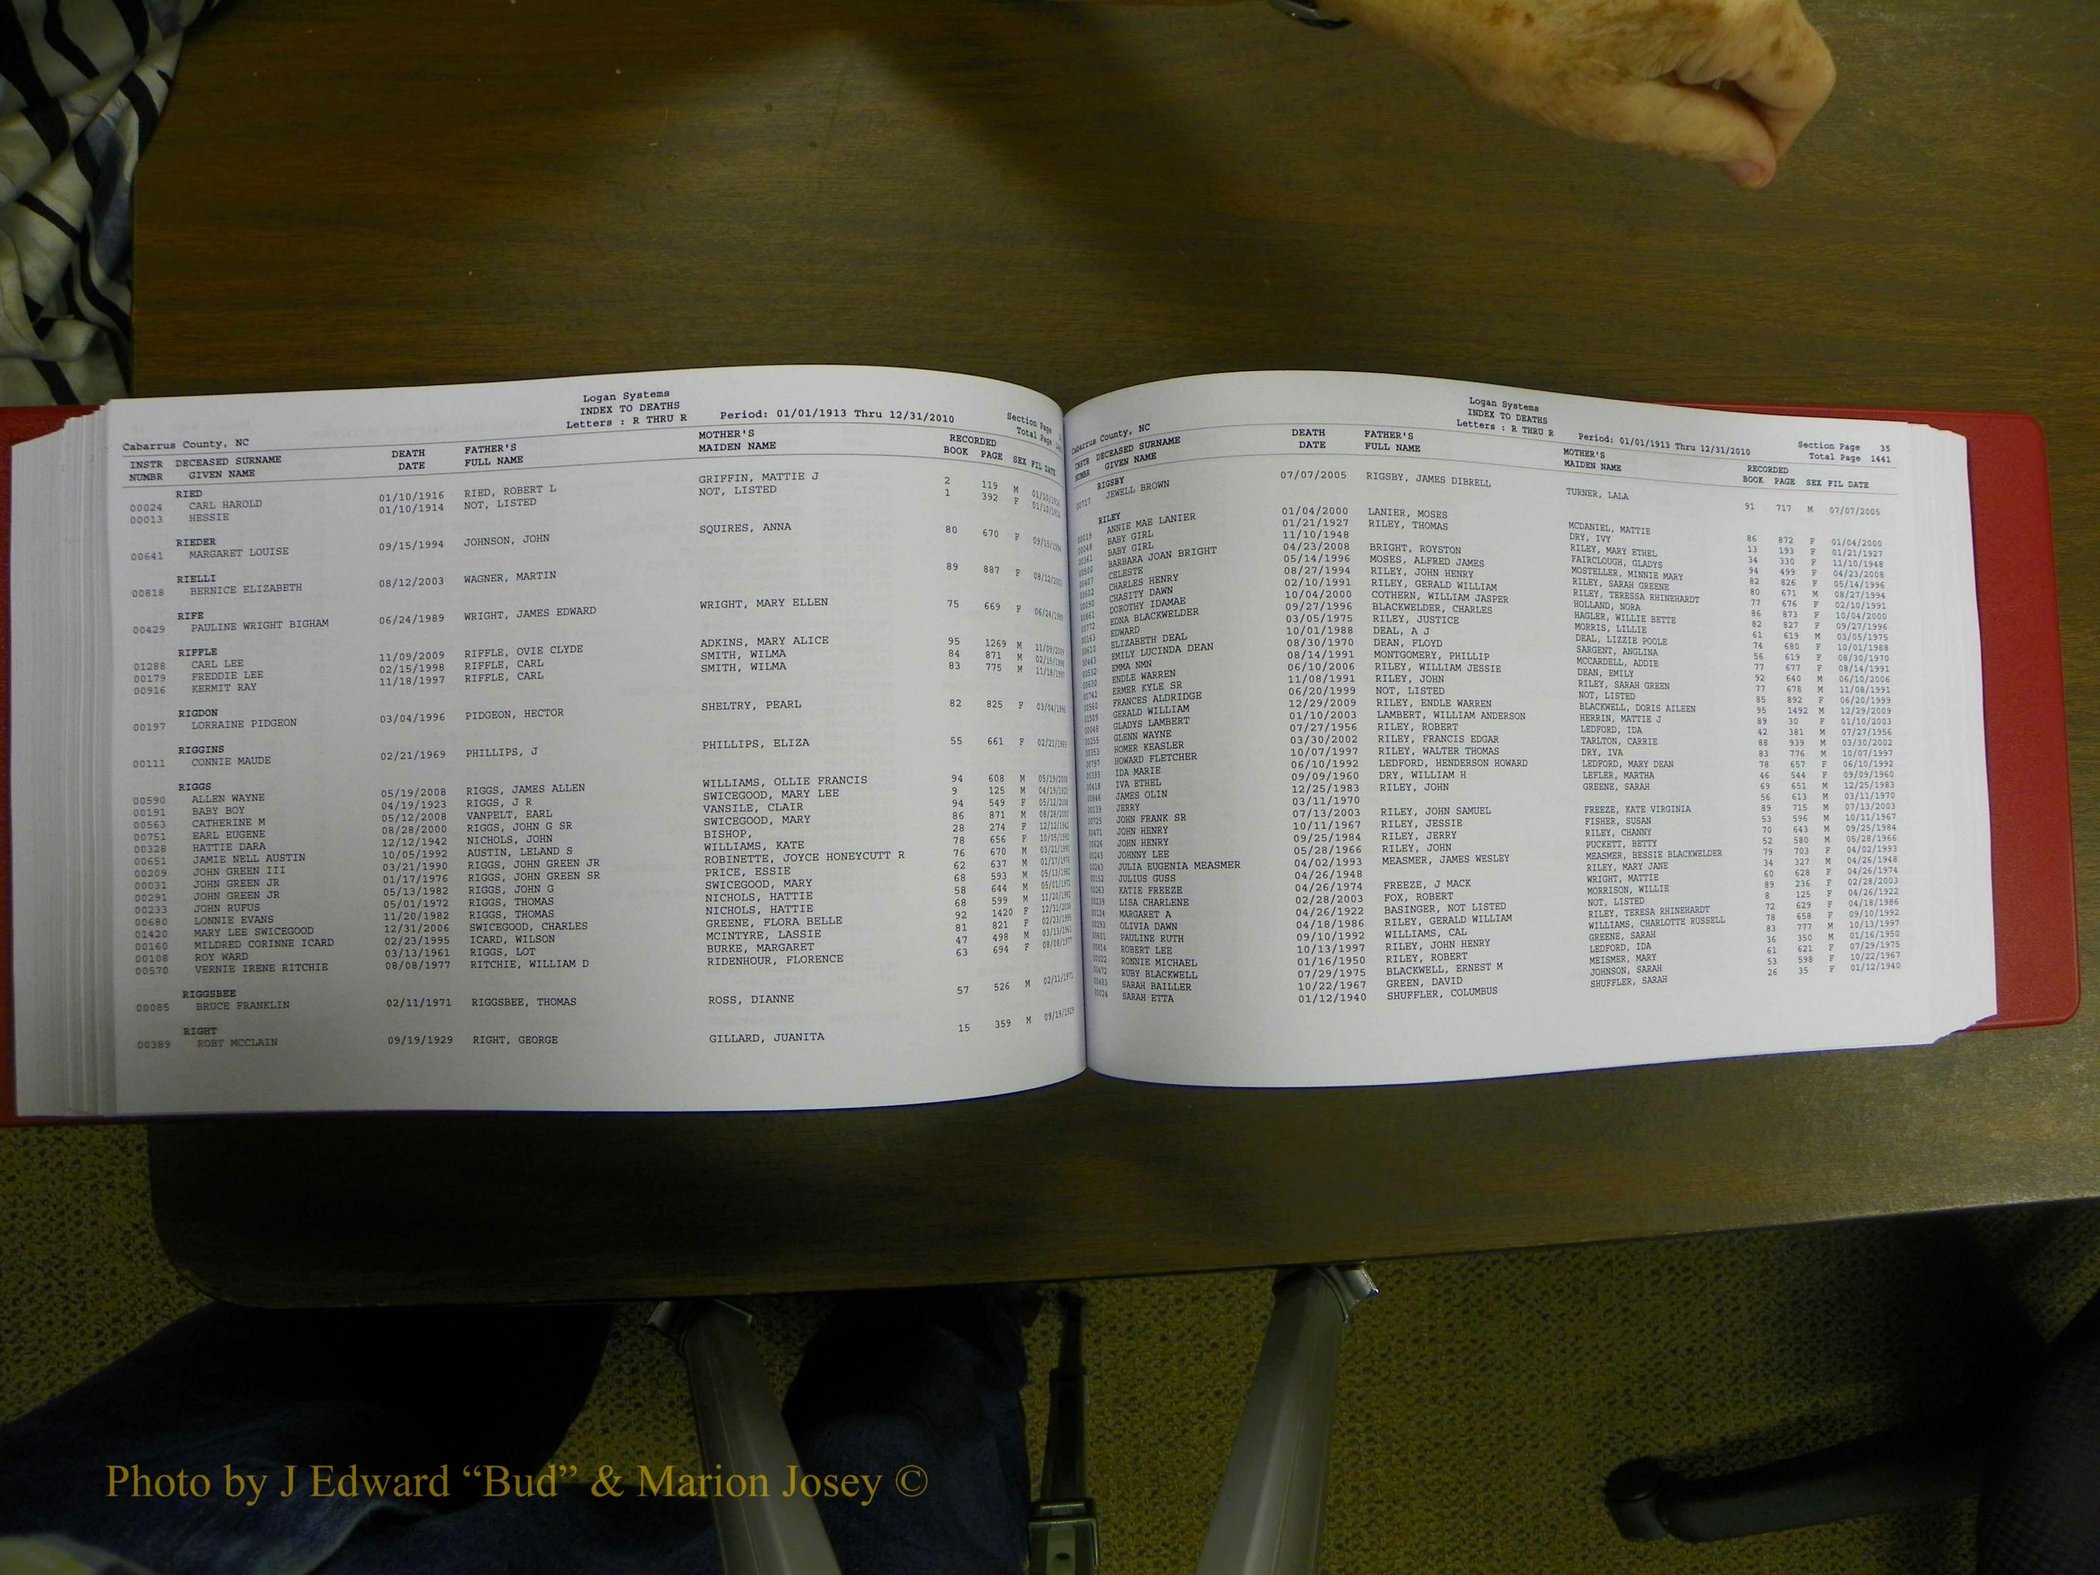 Logan Systems
INDEX TO DEATHS
Letters : R THRU R Period: 01/01/1913 Thru 12/31/2010 Section Page
Cabarrus County, NC Total Page
INSTR DECEASED SURNAME DEATH FATHER'S MOTHER'S RECORDED
NUMBR GIVEN NAME DATE FULL NAME MAIDEN NAME BOOK PAGE SEX FIL DATE
RIED
00024 CARL HAROLD 01/10/1916 RIED, ROBERT L GRIFFIN, MATTIE J 2 119 M 01/10/1916
00013 HESSIE 01/10/1914 NOT, LISTED NOT, LISTED 1 392 F 01/10/1914
RIEDER
00641 MARGARET LOUISE 09/15/1994 JOHNSON, JOHN SQUIRES, ANNA 80 670 F 09/15/1994
RIELLI
00818 BERNICE ELIZABETH 08/12/2003 WAGNER, MARTIN 89 887 F 08/12/2003
RIFE
00429 PAULINE WRIGHT BIGHAM 06/24/1989 WRIGHT, JAMES EDWARD WRIGHT, MARY ELLEN 75 669 F 06/24/1989
RIFFLE
01288 CARL LEE 11/09/2009 RIFFLE, OVIE CLYDE ADKINS, MARY ALICE 95 1269 M 11/09/2009
00179 FREDDIE LEE 02/15/1998 RIFFLE, CARL SMITH, WILMA 84 871 M 02/15/1998
00916 KERMIT RAY 11/18/1997 RIFFLE, CARL SMITH, WILMA 83 775 M 11/18/1997
RIGDON
00197 LORRAINE PIDGEON 03/04/1996 PIDGEON, HECTOR SHELTRY, PEARL 82 825 F 03/04/1996
RIGGINS
00111 CONNIE MAUDE 02/21/1969 PHILLIPS, J PHILLIPS, ELIZA 55 661 F 02/21/1969
RIGGS
00590 ALLEN WAYNE 05/19/2008 RIGGS, JAMES ALLEN WILLIAMS, OLLIE FRANCIS 94 608 M 05/19/2008
00191 BABY BOY 04/19/1923 RIGGS, J R SWICEGOOD, MARY LEE 9 125 M 04/19/1923
00563 CATHERINE M 05/12/2008 VANPELT, EARL VANSILE, CLAIR 94 549 F 05/12/2008
00751 EARL EUGENE 08/28/2000 RIGGS, JOHN G SR SWICEGOOD, MARY 86 871 M 08/28/2000
00328 HATTIE DARA 12/12/1942 NICHOLS, JOHN BISHOP, 28 274 F 12/12/1942
00651 JAMIE NELL AUSTIN 10/05/1992 AUSTIN, LELAND S WILLIAMS, KATE 78 656 F 10/05/1992
00209 JOHN GREEN III 03/21/1990 RIGGS, JOHN GREEN JR ROBINETTE, JOYCE HONEYCUTT R 76 670 M 03/21/1990
00031 JOHN GREEN JR 01/17/1976 RIGGS, JOHN GREEN SR PRICE, ESSIE 62 637 M 01/17/1976
00291 JOHN GREEN JR 05/13/1982 RIGGS, JOHN G SWICEGOOD, MARY 68 593 M 05/13/1982
00233 JOHN RUFUS 05/01/1972 RIGGS, THOMAS NICHOLS, HATTIE 58 644 M 05/01/1972
00680 LONNIE EVANS 11/20/1982 RIGGS, THOMAS NICHOLS, HATTIE 68 599 M 11/20/1982
01420 MARY LEE SWICEGOOD 12/31/2006 SWICEGOOD, CHARLES GREENE, FLORA BELLE 92 1420 F 12/31/2006
00160 MILDRED CORINNE ICARD 02/23/1995 ICARD, WILSON MCINTYRE, LASSIE 81 821 F 02/23/1995
00108 ROY WARD 03/13/1961 RIGGS, LOT BURKE, MARGARET 47 498 M 03/13/1961
00570 VERNIE IRENE RITCHIE 08/08/1977 RITCHIE, WILLIAM D RIDENHOUR, FLORENCE 63 694 F 08/08/1977
RIGGSBEE
00085 BRUCE FRANKLIN 02/11/1971 RIGGSBEE, THOMAS ROSS, DIANNE 57 526 M 02/11/1971
RIGHT
00389 ROBT MCCLAIN 09/19/1929 RIGHT, GEORGE GILLARD, JUANITA 15 359 M 09/19/1929
Logan Systems
INDEX TO DEATHS
Letters : R THRU R Period: 01/01/1913 Thru 12/31/2010 Section Page 35
Cabarrus County, NC Total Page 1441
INSTR DECEASED SURNAME DEATH FATHER'S MOTHER'S RECORDED
NUMBR GIVEN NAME DATE FULL NAME MAIDEN NAME BOOK PAGE SEX FIL DATE
RIGSBY
00717 JEWELL BROWN 07/07/2005 RIGSBY, JAMES DIBRELL TURNER, LALA 91 717 M 07/07/2005
RILEY
ANNIE MAE LANIER 01/04/2000 LANIER, MOSES MCDANIEL, MATTIE 86 872 F 01/04/2000
BABY GIRL 01/21/1927 RILEY, THOMAS DRY, IVY 13 193 F 01/21/1927
BABY GIRL 11/10/1948 RILEY, MARY ETHEL 34 330 F 11/10/1948
BARBARA JOAN BRIGHT 04/23/2008 BRIGHT, ROYSTON FAIRCLOUGH, GLADYS 94 499 F 04/23/2008
CELESTE 05/14/1996 MOSES, ALFRED JAMES MOSTELLER, MINNIE MARY 82 826 F 05/14/1996
CHARLES HENRY 08/27/1994 RILEY, JOHN HENRY RILEY, SARAH GREENE 80 671 M 08/27/1994
CHASITY DAWN 02/10/1991 RILEY, GERALD WILLIAM RILEY, TERESSA RHINEHARDT 77 676 F 02/10/1991
DOROTHY IDAMAE 10/04/2000 COTHERN, WILLIAM JASPER HOLLAND, NORA 86 873 F 10/04/2000
EDNA BLACKWELDER 09/27/1996 BLACKWELDER, CHARLES HAGLER, WILLIE BETTE 82 827 F 09/27/1996
EDWARD 03/05/1975 RILEY, JUSTICE MORRIS, LILLIE 61 619 M 03/05/1975
ELIZABETH DEAL 10/01/1988 DEAL, A J DEAL, LIZZIE POOLE 74 680 F 10/01/1988
EMILY LUCINDA DEAN 08/30/1970 DEAN, FLOYD SARGENT, ANGLINA 56 619 F 08/30/1970
EMMA NMN 08/14/1991 MONTGOMERY, PHILLIP MCCARDELL, ADDIE 77 677 F 08/14/1991
ENDLE WARREN 06/10/2006 RILEY, WILLIAM JESSIE DEAN, EMILY 92 640 M 06/10/2006
ERMER KYLE SR 11/08/1991 RILEY, JOHN RILEY, SARAH GREEN 77 678 M 11/08/1991
FRANCES ALDRIDGE 06/20/1999 NOT, LISTED NOT, LISTED 85 892 F 06/20/1999
GERALD WILLIAM 12/29/2009 RILEY, ENDLE WARREN BLACKWELL, DORIS AILEEN 95 1492 M 12/29/2009
GLADYS LAMBERT 01/10/2003 LAMBERT, WILLIAM ANDERSON HERRIN, MATTIE J 89 30 F 01/10/2003
GLENN WAYNE 07/27/1956 RILEY, ROBERT LEDFORD, IDA 42 381 M 07/27/1956
HOMER KEASLER 03/30/2002 RILEY, FRANCIS EDGAR TARLTON, CARRIE 88 939 M 03/30/2002
HOWARD FLETCHER 10/07/1997 RILEY, WALTER THOMAS DRY, IVA 83 776 M 10/07/1997
IDA MARIE 06/10/1992 LEDFORD, HENDERSON HOWARD LEDFORD, MARY DEAN 78 657 F 06/10/1992
IVA ETHEL 09/09/1960 DRY, WILLIAM H LEFLER, MARTHA 46 544 F 09/09/1960
JAMES OLIN 12/25/1983 RILEY, JOHN GREENE, SARAH 69 651 M 12/25/1983
JERRY 03/11/1970 56 613 M 03/11/1970
JOHN FRANK SR 07/13/2003 RILEY, JOHN SAMUEL FREEZE, KATE VIRGINIA 89 715 M 07/13/2003
JOHN HENRY 10/11/1967 RILEY, JESSIE FISHER, SUSAN 53 596 M 10/11/1967
JOHN HENRY 09/25/1984 RILEY, JERRY RILEY, CHANNY 70 643 M 09/25/1984
JOHNNY LEE 05/28/1966 RILEY, JOHN PUCKETT, BETTY 52 580 M 05/28/1966
JULIA EUGENIA MEASMER 04/02/1993 MEASMER, JAMES WESLEY MEASMER, BESSIE BLACKWELDER 79 703 F 04/02/1993
JULIUS GUSS 04/26/1948 RILEY, MARY JANE 34 327 M 04/26/1948
KATIE FREEZE 04/26/1974 FREEZE, J MACK WRIGHT, MATTIE 60 628 F 04/26/1974
LISA CHARLENE 02/28/2003 FOX, ROBERT MORRISON, WILLIE 89 236 F 02/28/2003
MARGARET A 04/26/1922 BASINGER, NOT LISTED NOT, LISTED 8 125 F 04/26/1922
OLIVIA DAWN 04/18/1986 RILEY, GERALD WILLIAM RILEY, TERESA RHINEHARDT 72 629 F 04/18/1986
PAULINE RUTH 09/10/1992 WILLIAMS, CAL WILLIAMS, CHARLOTTE RUSSELL 78 658 F 09/10/1992
ROBERT LEE 10/13/1997 RILEY, JOHN HENRY GREENE, SARAH 83 777 M 10/13/1997
RONNIE MICHAEL 01/16/1950 RILEY, ROBERT LEDFORD, IDA 36 350 M 01/16/1950
RUBY BLACKWELL 07/29/1975 BLACKWELL, ERNEST M MEISMER, MARY 61 621 F 07/29/1975
SARAH BAILLER 10/22/1967 GREEN, DAVID JOHNSON, SARAH 53 598 F 10/22/1967
SARAH ETTA 01/12/1940 SHUFFLER, COLUMBUS SHUFFLER, SARAH 26 35 F 01/12/1940
Photo by J Edward “Bud” & Marion Josey ©